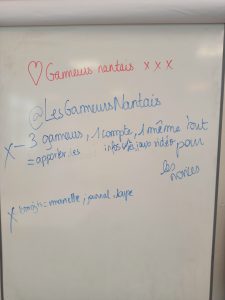 ♡ Gameurs nantais x x x
@LesGameursNantais
x - 3 gameurs, 1 compte, 1 même but
= apporter les infos jeux vidéo pour
les novices
x = manette, journal,